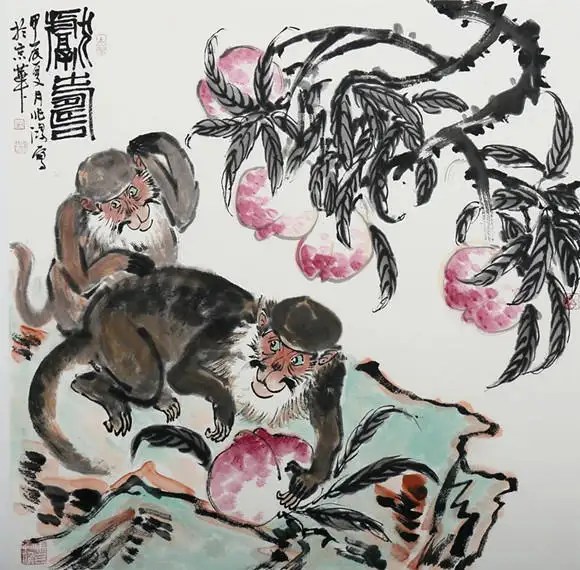 獻壽
甲辰夏月兆寫
於京華